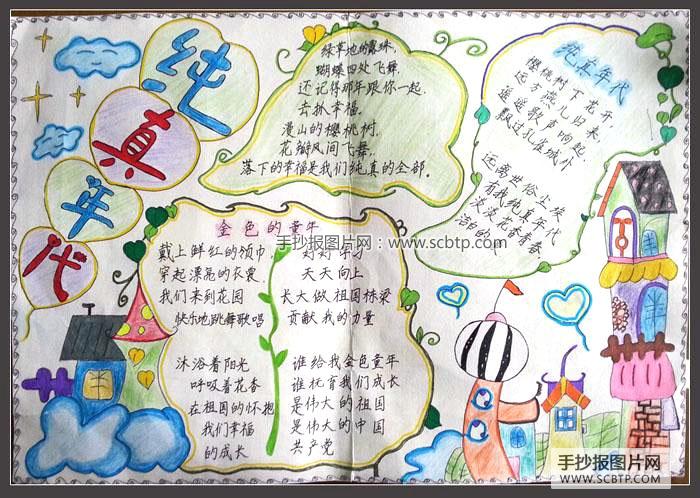 纯真年代
绿草地的露珠，
蝴蝶四处飞舞，
还记得那年跟你一起，
去抓幸福。
漫山的樱桃树，
花瓣风间飞舞，
落下的幸福是我们纯真的全部。
纯真年代
樱桃树下花开，
远方燕儿归来，
遥遥歌声响起，
飘过孔雀城外
远离世俗尘埃
有我纯真年代
淡淡花香青春
洁白的
金色的童年
戴上鲜红的领巾
穿起漂亮的衣裳
我们来到花园
快乐地跳舞歌唱
沐浴着阳光
呼吸着花香
在祖国的怀抱
我们幸福
的成长
好好学习
天天向上
长大做祖国栋梁
贡献我的力量
谁给我金色童年
谁托育我们成长
是伟大的祖国
是伟大的中国
共产党
手抄报图片网：www.scbtp.com
手抄报图片网
WWW.SCBTP.COM